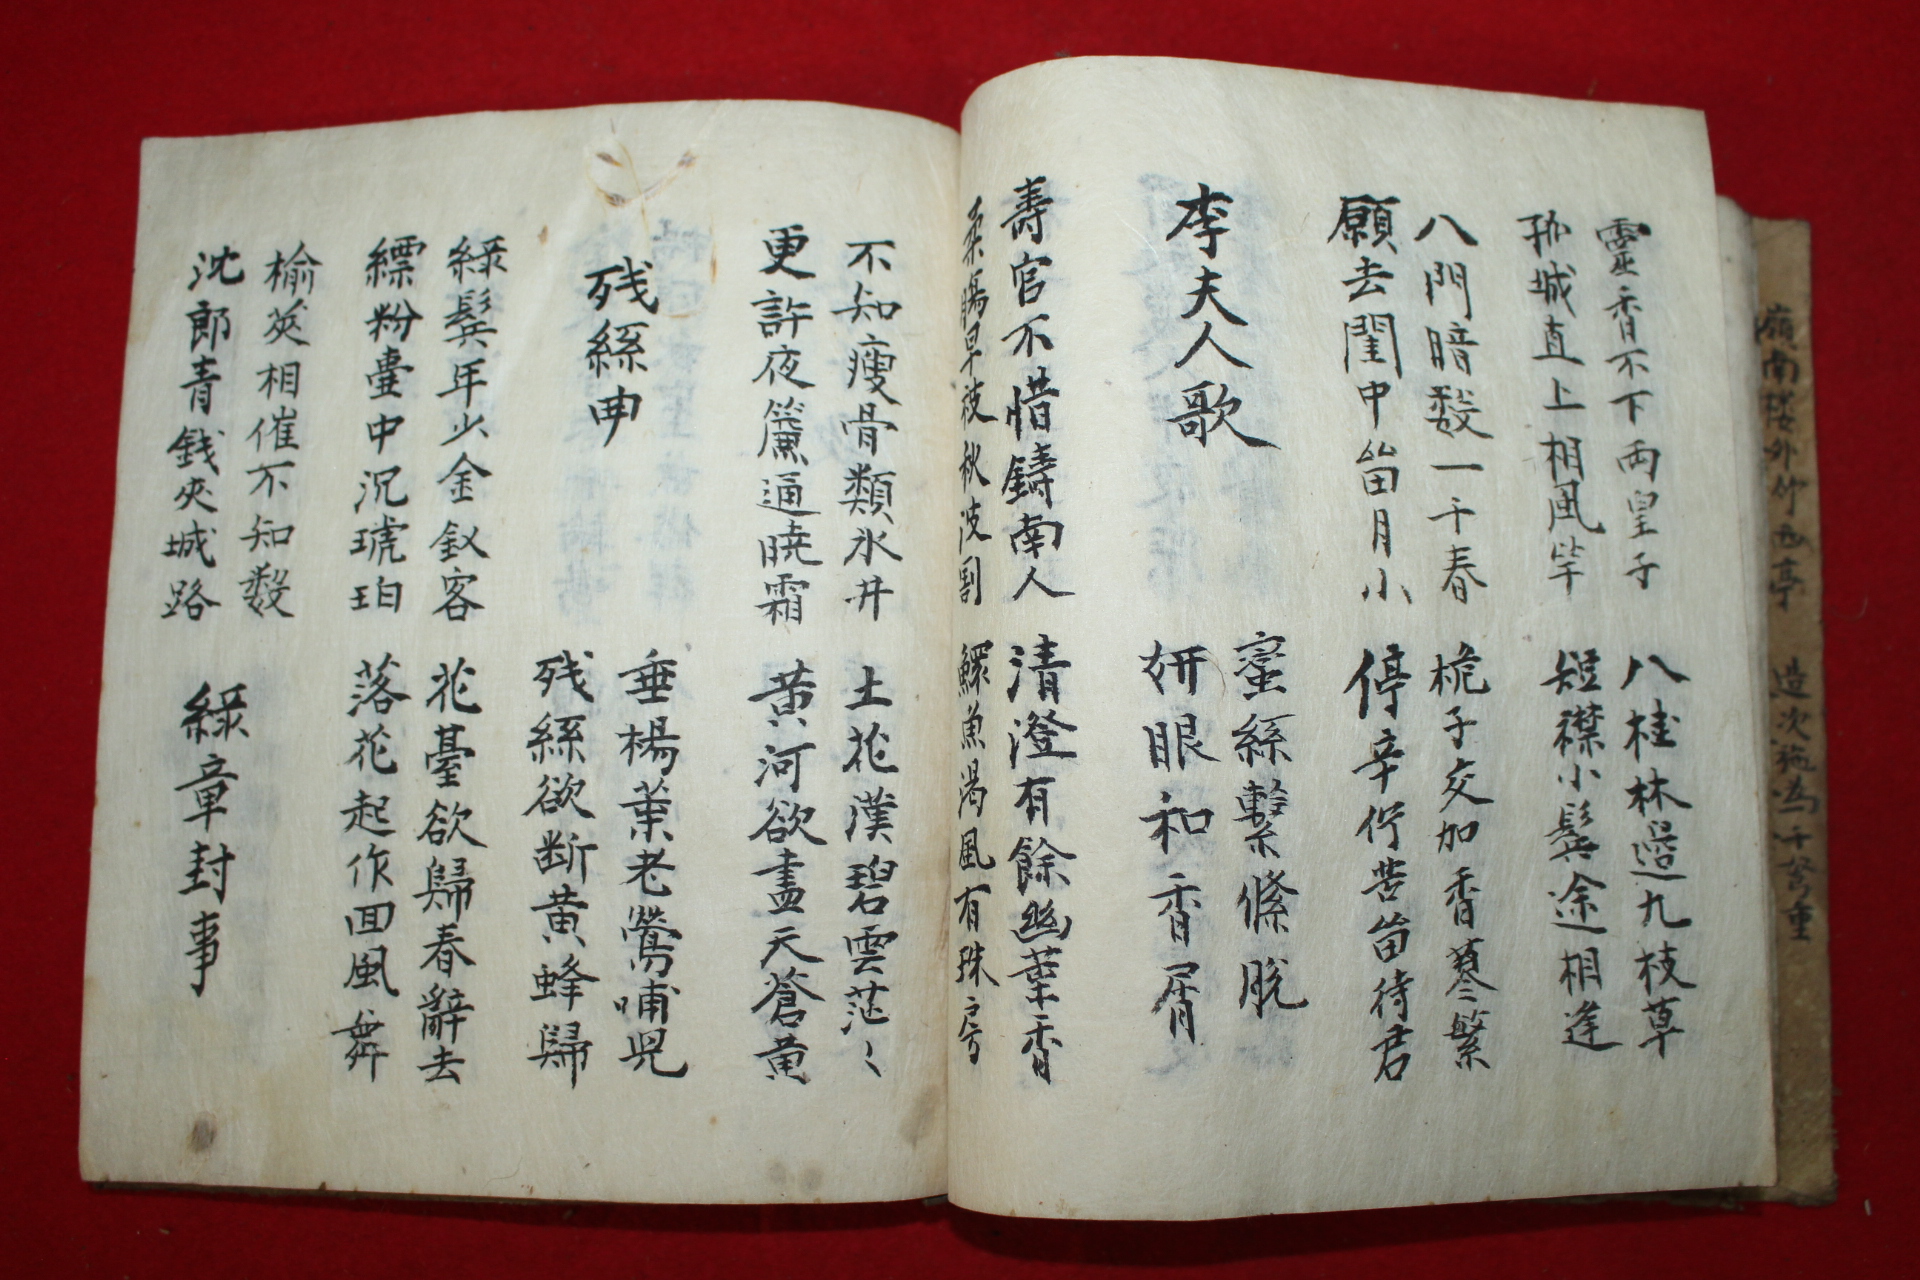 靈香不下兩皇子 八桂林邊九枝草
孤城直上相風竿 短襟小鬢途相逢
八門暗数一千春 梔子交加香蓼繁
願去閏中留月小 停辛佇苦留待君
李夫人歌
蛮絲繫條脱
妍眼和香屑
壽官不惜鑄南人 清澄有餘幽葉香
柔腸早被秋波割 鰥魚渴風有珠房
不知瘦骨類氷井 土花漢碧雲茫〻
更許夜簾通曉霜 黄河欲盡天蒼黄
残絲曲
垂楊葉老鶯哺児
残絲欲断黄蜂歸
綠鬢年少金釵客 花臺欲歸春辭去
縹粉壺中沉琥珀 落花起作回風舞
楡莢相催不知数
沈郎青錢夾城路
綠章封事
嶺南楼外竹西亭 造次施為千弩重